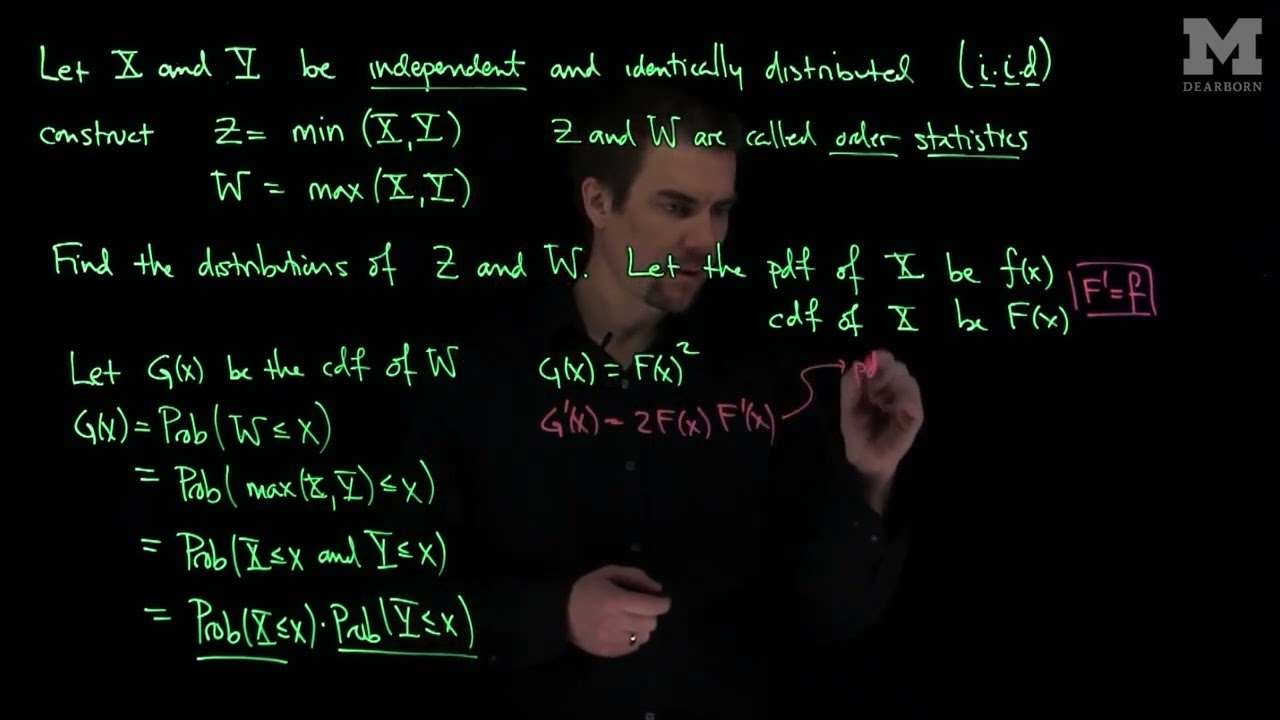 Let X and Y be independent and identically distributed (i.i.d)
construct Z = min (X,Y) Z and W are called order statistics
W = max (X,Y)
Find the distributions of Z and W. Let the pdf of X be f(x)
cdf of X be F(x)
F' = f
Let G(x) be the cdf of W
G(x) = Prob(W ≤ x)
= Prob( max(X,Y) ≤ x)
= Prob(X ≤ x and Y ≤ x)
= Prob(X ≤ x) · Prob(Y ≤ x)
G(x) = F(x)²
G'(x) = 2F(x) F'(x)
pd
M
DEARBORN